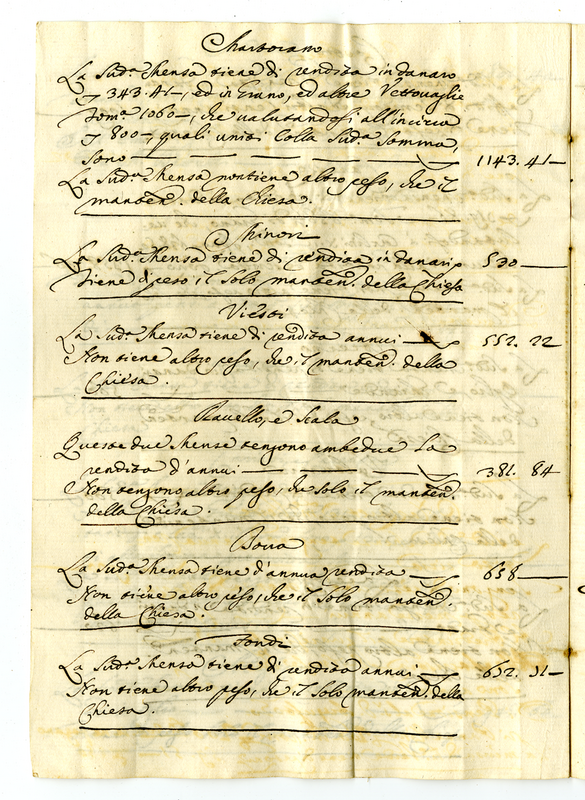 La Sud.ª Mensa tiene di rendita in danaro
343.41—, ed in Grano, ed altre Vettovaglie
Tom.ª 1060—, che valutandosi all'incirca
800—, quali uniti colla Sud.ª Somma,
Sono — — — 1143. 41—
La Sud.ª Mensa non tiene altro peso, che il
manten. della Chiesa.
Minori
La Sud.ª Mensa tiene di rendita in danari 530—
Tiene di peso il solo manten. della Chiesa
Viesti
La Sud.ª Mensa tiene di rendita annui — 552. 22
Non tiene altro peso, che il manten. della
Chiesa.
Ravello, e Scala
Queste due Mense tengono ambedue la
rendita d'annui — — — 381. 84
Non tengono altro peso, che solo il manten.
della Chiesa.
Bova
La Sud.ª Mensa tiene d'annua rendita — 658—
Non tiene altro peso, che il solo manten.
della Chiesa.
Fondi
La Sud.ª Mensa tiene di rendita annui — 652. 51—
Non tiene altro peso, che il solo manten. della
Chiesa.